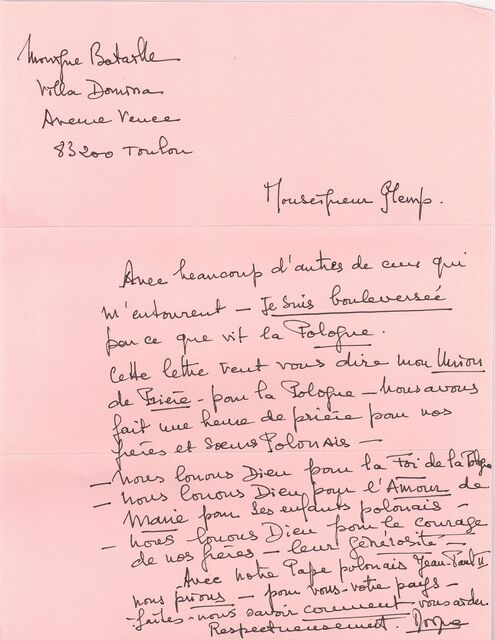 Monique Bataille
Villa Domina
Avenue Vence
83200 Toulon
Monseigneur Glemp.
Avec beaucoup d'autres de ceux qui
m'entourent – Je suis bouleversée
par ce que vit la Pologne.
Cette lettre veut vous dire mon Union
de Prière – pour la Pologne – Nous avons
fait une heure de prière pour nos
frères et Sœurs Polonais –
– nous louons Dieu pour la Foi de la Pologne
– nous louons Dieu pour l'Amour de
Marie pour ses enfants polonais –
– nous louons Dieu pour le courage
de nos frères – leur générosité –
Avec notre Pape polonais Jean-Paul II
nous prions – pour vous – votre pays –
faites-nous savoir comment vous aider
Respectueusement.